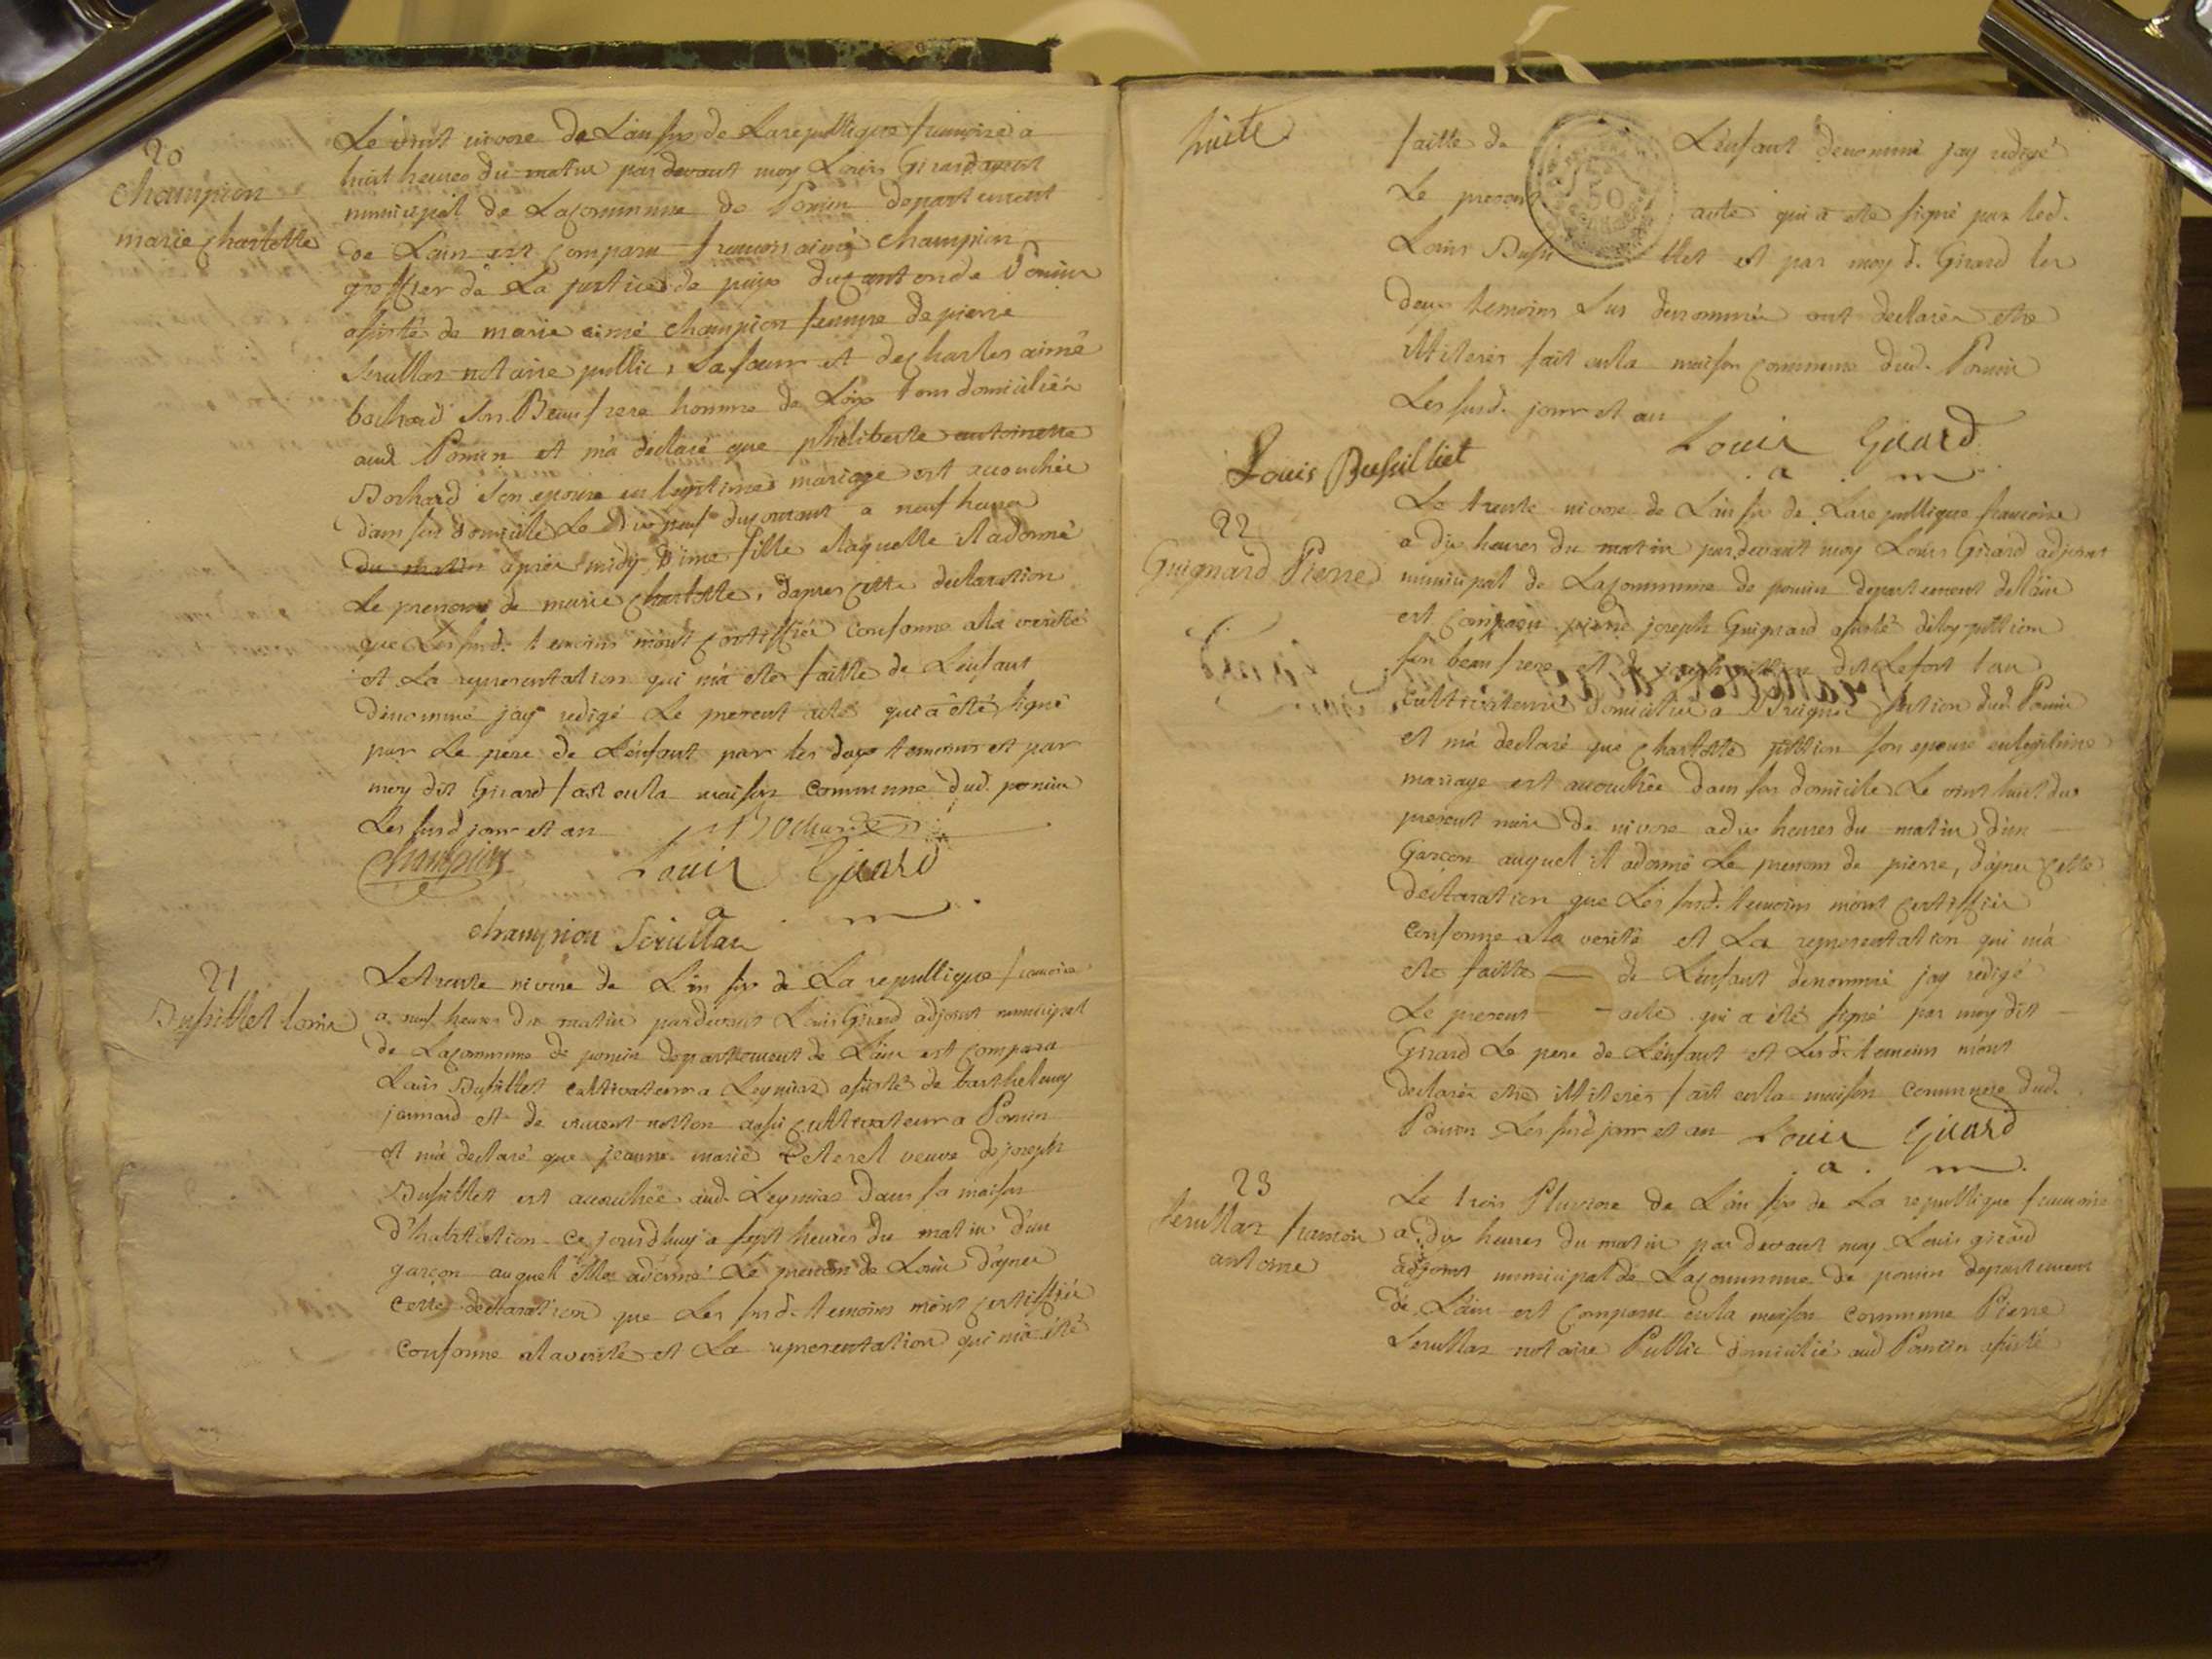 20
champion
marie charlotte
Le vint nivose de L'an six de La republique francoise a
huit heures du matin par devant moy Louis Girard agent
municipal de La commune de Poncin departement
de Lain est comparu francois aimé champion
greffier de La justice de paix du canton de Poncin
assisté de marie aimé champion femme de pierre
Serullaz notaire public, sa soeur et de charles aimé
bochard son Beau frere homme de Loix tous domiciliés
aud Poncin et m'a declaré que philiberte antoinette
Bochard son epouse en legitime mariage est accouchée
dans son domicile Le dix neuf du courant a neuf heures
du matin après midy d'une fille a laquelle il a donné
Le prenom de marie charlotte, dapres cette declaration
que Les susd. temoins m'ont certiffiée conforme a la verité
et La representation qui m'a eté faitte de L'enfant
dénommé j'ay redigé Le present acte qui a été signé
par Le pere de L'enfant par les deux temoins et par
moy dit Girard fait en la maison commune dud. poncin
Les susd jour et an
Bochard
champion
Louis Girard
a . m .
champion Serullaz
21
Busillet louis
Le trente nivose de L'an six de La republique francoise
a neuf heures du matin pardevant Louis Girard adjoint municipal
de La commune de poncin departement de L'ain est comparu
Louis Busillet cultivateur a Leymiaz assisté de barthelemy
jannard et de vincent notton aussi cultivateur a Poncin
et m'a declaré que jeanne marie veuve de joseph
Busillet est accouchée aud. Leymiaz dans sa maison
d'habitation ce jourdhuy a sept heures du matin d'un
garçon auquel elle a donné Le prenom de Louis d'apres
cette declaration que Les susd. temoins m'ont certiffiée
conforme a la verité et La representation qui m'a été
suite
faitte de L'enfant denommé jay redigé
Le present acte qui a eté signé par led.
Louis Busillet et par moy d. Girard les
deux temoins sus denommés ont declarés etre
illiterés fait en la maison commune dud. Poncin
Les susd. jour et an
Louis Girard
a . m
Louis Busilliet
22
Guignard Pierre
Le trente nivose de L'an six de La republique francoise
a dix heures du matin pardevant moy Louis Girard adjoint
municipal de La commune de poncin departement de l'ain
est comparu pierre joseph Guignard assisté d'eloy pittion
son beau frere et de joseph pittion dit Lefort tous
cultivateurs domiciliés a Breignes section dud. Poncin
et m'a declaré que charlotte pittion son epouse en legitime
mariage est accouchée dans son domicile Le vint huit du
present mois de nivose a dix heures du matin d'un
Garcon auquel il a donné Le prenom de pierre, d'apres cette
declaration que Les susd. temoins m'ont certiffiée
conforme a la verité et La representation qui m'a
eté faitte de L'enfant denommé jay redigé
Le present acte qui a été signé par moy dit
Girard Le pere de L'enfant et Lesd. temoins m'ont
declarés etre illiterés fait en la maison commune dud.
Poncin Les susd jour et an Louis Girard
. a . m .
23
Serullaz francois
antoine
Le trois Pluviose de L'an six de La republique francoise
a dix heures du matin par devant moy Louis girard
adjoint municipal de La commune de poncin departement
de L'ain est comparu en la maison commune Pierre
Serullaz notaire Public domicilié aud Poncin assisté